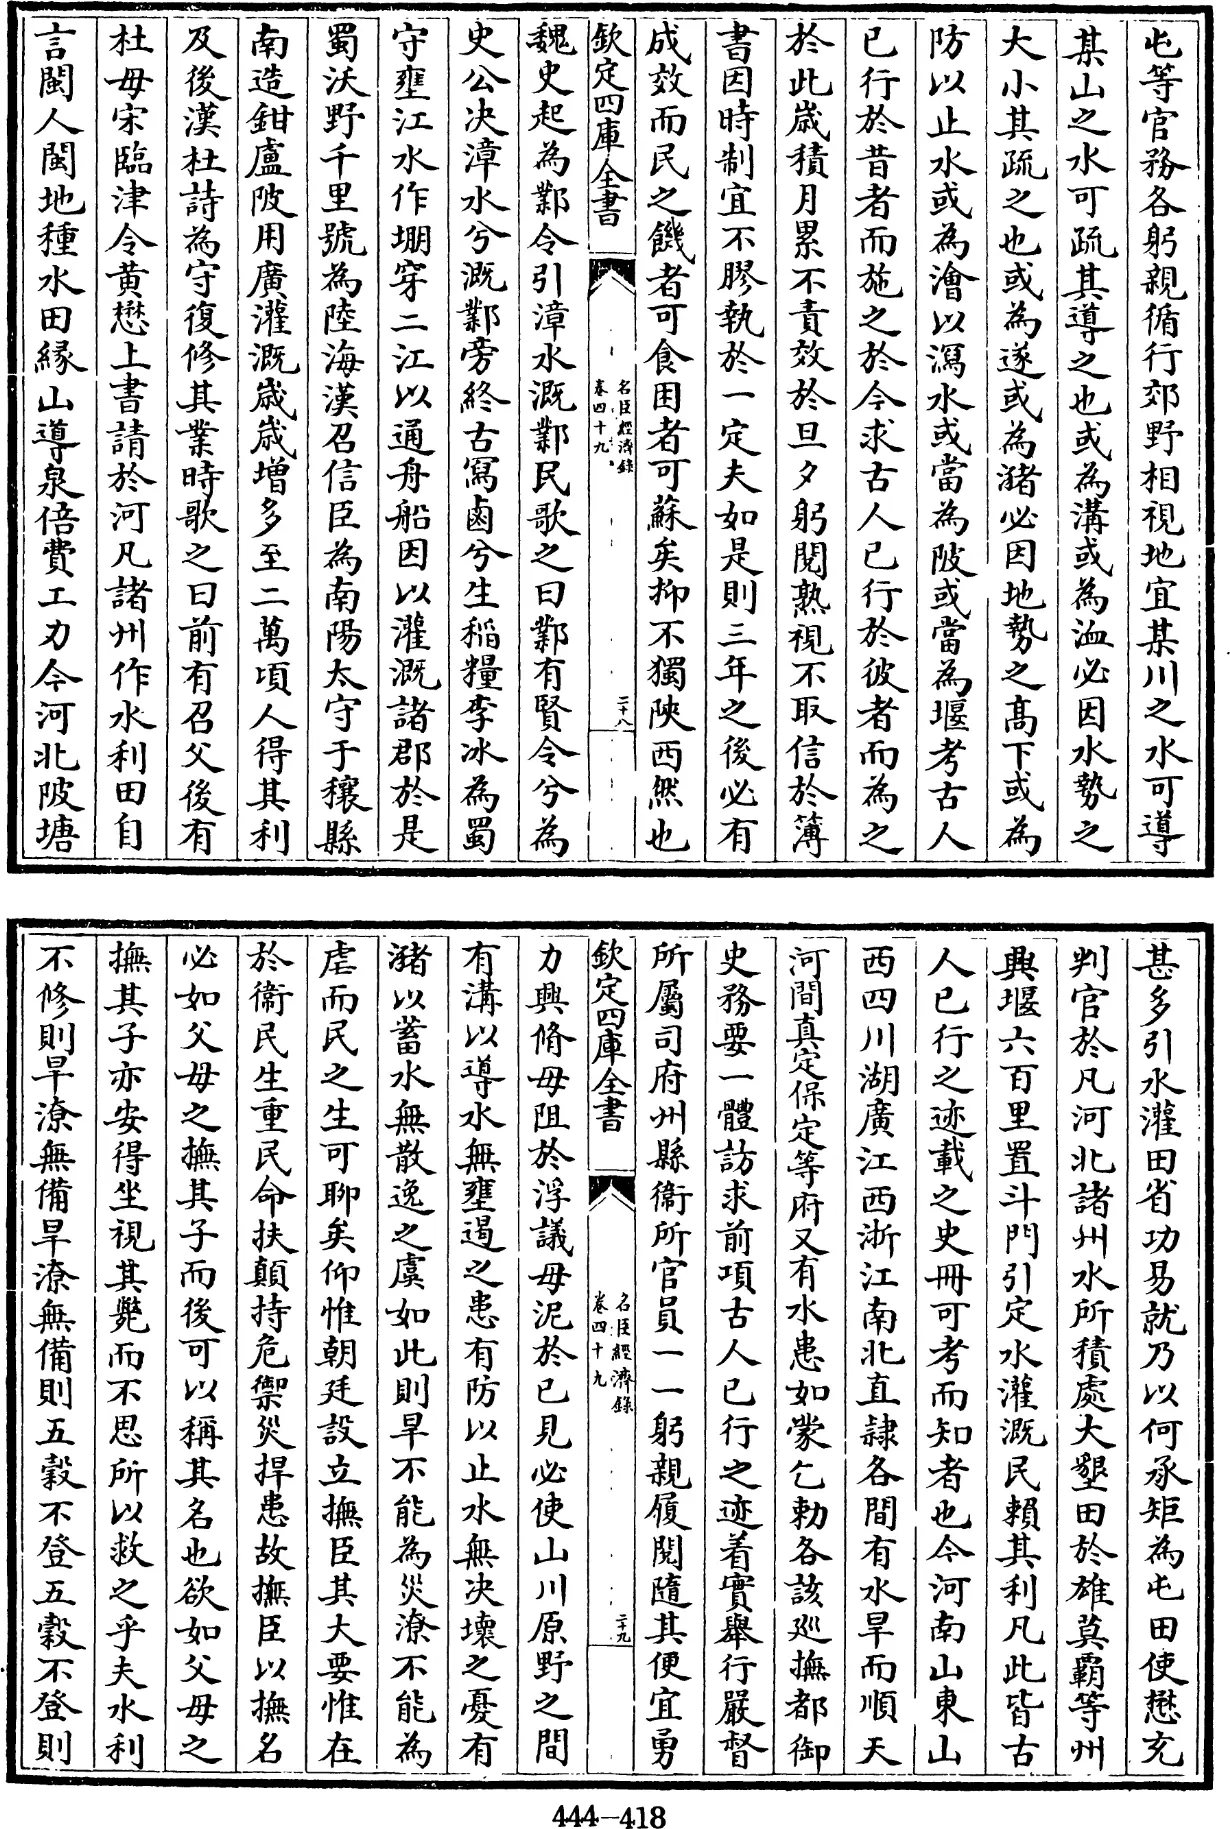 屯等官務各躬親循行郊野相視地宜某川之水可導
某山之水可疏其導之也或為溝或為洫必因水勢之
大小其疏之也或為遂或為瀦必因地勢之髙下或為
防以止水或為澮以瀉水或當為陂或當為堰考古人
已行於昔者而施之於今求古人已行於彼者而為之
於此嵗積月累不責效於旦夕躬閱熟視不取信於簿
書因時制宜不膠執於一定夫如是則三年之後必有
成效而民之饑者可食困者可蘇矣抑不獨陜西然也
欽定四庫全書
名臣經濟録
卷四十九
二十八
魏史起為鄴令引漳水溉鄴民歌之曰鄴有賢令兮為
史公决漳水兮溉鄴旁終古舄鹵兮生稻糧李冰為蜀
守壅江水作堋穿二江以通舟船因以灌溉諸郡於是
蜀沃野千里號為陸海漢召信臣為南陽太守于穰縣
南造鉗盧陂用廣灌溉嵗嵗增多至二萬頃人得其利
及後漢杜詩為守復修其業時歌之曰前有召父後有
杜母宋臨津令黄懋上書請於河凡諸州作水利田自
言閩人閩地種水田緣山導泉倍費工力今河北陂塘
甚多引水灌田省功易就乃以何承矩為屯田使懋充
判官於凡河北諸州水所積處大墾田於雄莫霸等州
興堰六百里置斗門引定水灌溉民賴其利凡此皆古
人已行之迹載之史冊可考而知者也今河南山東山
西四川湖廣江西浙江南北直隷各間有水旱而順天
河間真定保定等府又有水患如蒙乞勅各該廵撫都御
史務要一體訪求前項古人已行之迹着實舉行嚴督
所屬司府州縣衞所官員一一躬親履閱隨其便宜勇
欽定四庫全書
名臣經濟録
卷四十九
二十九
力興脩毋阻於浮議毋泥於已見必使山川原野之間
有溝以導水無壅遏之患有防以止水無决壞之憂有
瀦以蓄水無散逸之虞如此則旱不能為災潦不能為
虐而民之生可聊矣仰惟朝廷設立撫臣其大要惟在
於衞民生重民命扶顛持危禦災捍患故撫臣以撫名
必如父母之撫其子而後可以稱其名也欲如父母之
撫其子亦安得坐視其斃而不思所以救之乎夫水利
不修則旱潦無備旱潦無備則五糓不登五糓不登則
444-418